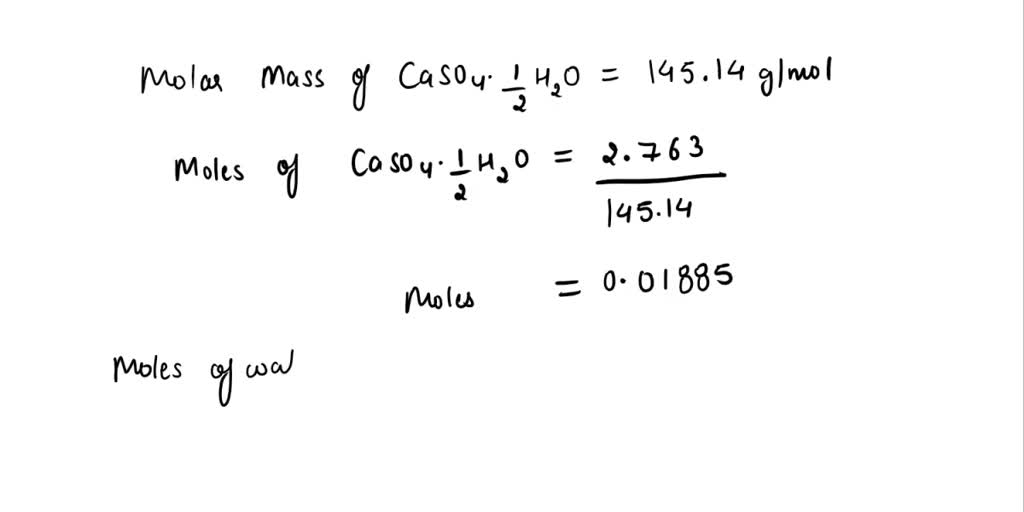 Molar Mass of CaSO4·1/2 H2O = 145.14 g/mol
Moles of CaSO4·1/2 H2O = 2.763/145.14
Moles = 0.01885
Moles of wa